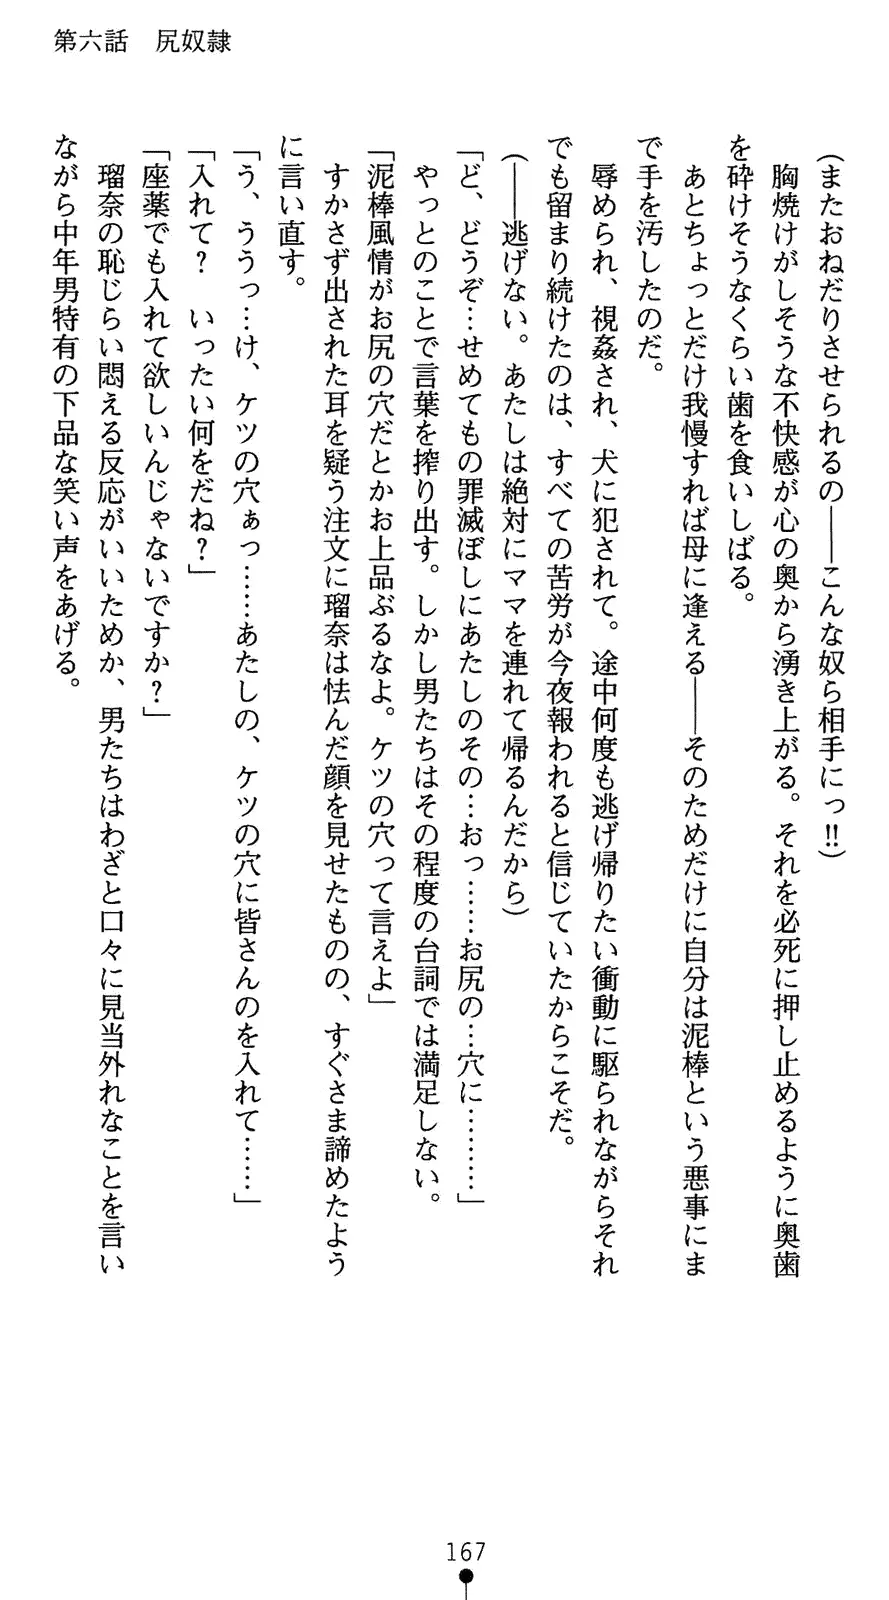 第六話　尻奴隷
(またおねだりさせられるの――こんな奴ら相手にっ!!)
　胸焼けがしそうな不快感が心の奥から湧き上がる。それを必死に押し止めるように奥歯
を砕けそうなくらい歯を食いしばる。
　あとちょっとだけ我慢すれば母に逢える――そのためだけに自分は泥棒という悪事にま
で手を汚したのだ。
　辱められ、視姦され、犬に犯されて。途中何度も逃げ帰りたい衝動に駆られながらそれ
でも留まり続けたのは、すべての苦労が今夜報われると信じていたからこそだ。
(――逃げない。あたしは絶対にママを連れて帰るんだから)
「ど、どうぞ…せめてもの罪滅ぼしにあたしのその…おっ……お尻の…穴に………」
　やっとのことで言葉を搾り出す。しかし男たちはその程度の台詞では満足しない。
「泥棒風情がお尻の穴だとかお上品ぶるなよ。ケツの穴って言えよ」
　すかさず出された耳を疑う注文に瑠奈は怯んだ顔を見せたものの、すぐさま諦めたよう
に言い直す。
「う、ううっ…け、ケツの穴ぁっ……あたしの、ケツの穴に皆さんのを入れて……」
「入れて？　いったい何をだね？」
「座薬でも入れて欲しいんじゃないですか？」
　瑠奈の恥じらい悶える反応がいいためか、男たちはわざと口々に見当外れなことを言い
ながら中年男特有の下品な笑い声をあげる。
167